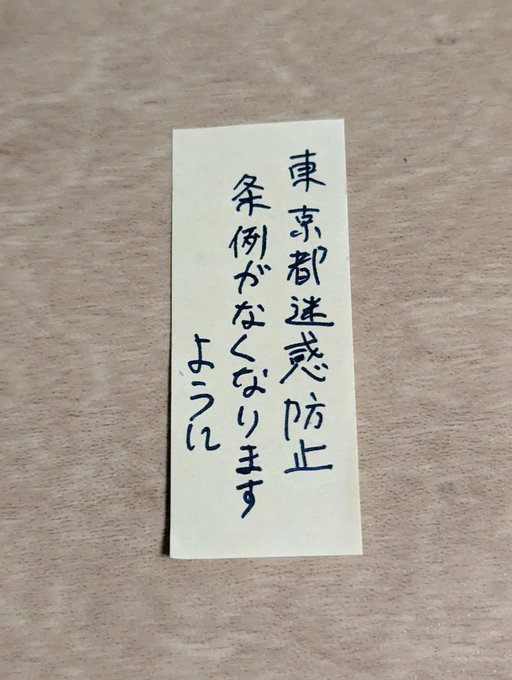 東京都迷惑防止
条例がなくなります
ように